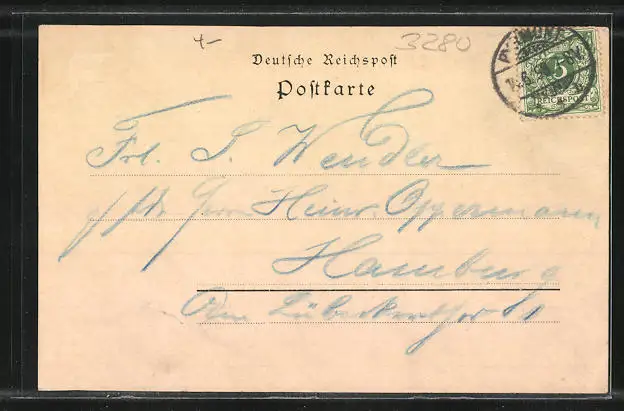 4-
3280
Deutsche Reichspost
Postkarte
PYRMONT
5
REICHSPOST
Frl. T. Wendler
Herrn Heinr. Oppermann
Hamburg
Am Lübeckerthor